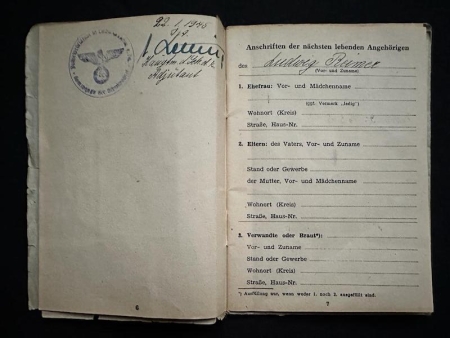 22. 1. 1945
Hauptm. d. Sch. u.
Adjutant
6
Anschriften der nächsten lebenden Angehörigen
des Ludwig
(Vor- und Zuname)
1. Ehefrau: Vor- und Mädchenname
ggf. Vermerk „ledig“)
Wohnort (Kreis)
Straße, Haus-Nr.
2. Eltern: des Vaters, Vor- und Zuname
Stand oder Gewerbe
der Mutter, Vor- und Mädchenname
Wohnort (Kreis)
Straße, Haus-Nr.
3. Verwandte oder Braut*):
Vor- und Zuname
Stand oder Gewerbe
Wohnort (Kreis)
Straße, Haus-Nr.
*) Ausfüllung nur, wenn weder 1. noch 2. ausgefüllt sind.
7